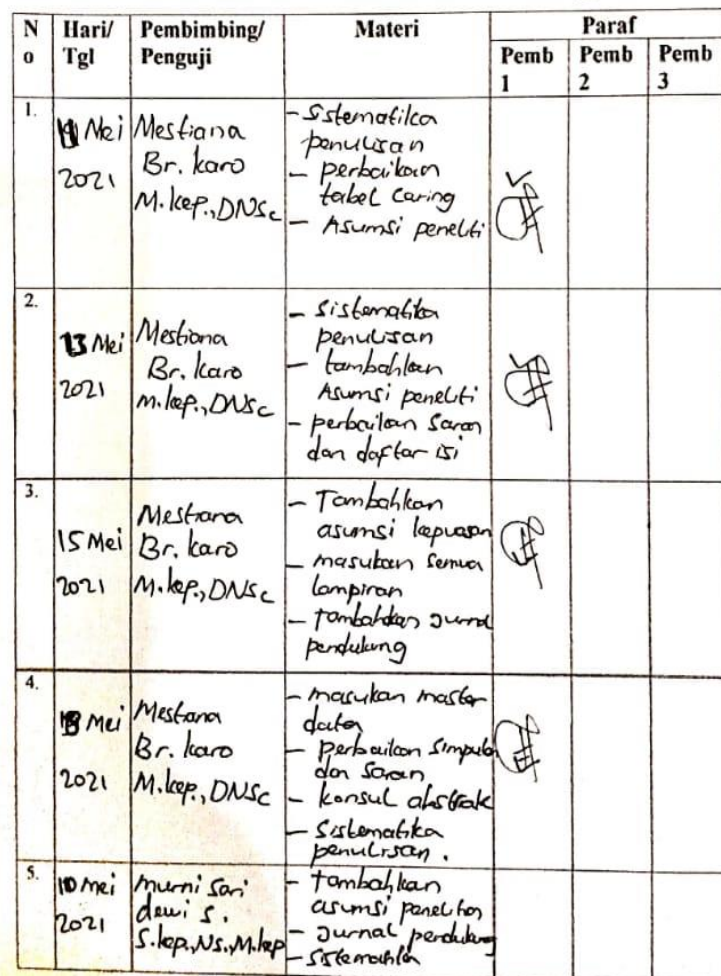 No Hari/ Tgl Pembimbing/ Penguji Materi Paraf
Pemb 1 Pemb 2 Pemb 3
1.
Mei 2021
Mestiana
Br. karo
M.kep., DNSc
- Sistematika
penulisan
- perbaikan
tabel Caring
- Asumsi peneliti
2.
13 Mei
2021
Mestiana
Br. karo
M.kep., DNSc
- Sistematika
penulisan
- tambahkan
Asumsi peneliti
- perbaikan Saran
dan daftar isi
3.
15 Mei
2021
Mestiana
Br. karo
M.kep., DNSc
- Tambahkan
asumsi kepuasan
- masukan semua
lampiran
- tambahkan Jurnal
pendukung
4.
18 Mei
2021
Mestiana
Br. karo
M.kep., DNSc
- masukan master
data
- perbaikan Simpulan
dan Saran
- konsul abstrak
- Sistematika
penulisan.
5.
10 Mei
2021
murni Sari
dewi S.
S.kep., Ns., M.kep
- tambahkan
asumsi
- Jurnal pendukung